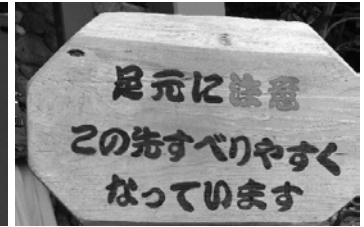 足元に注意
この先すべりやすく
なっています